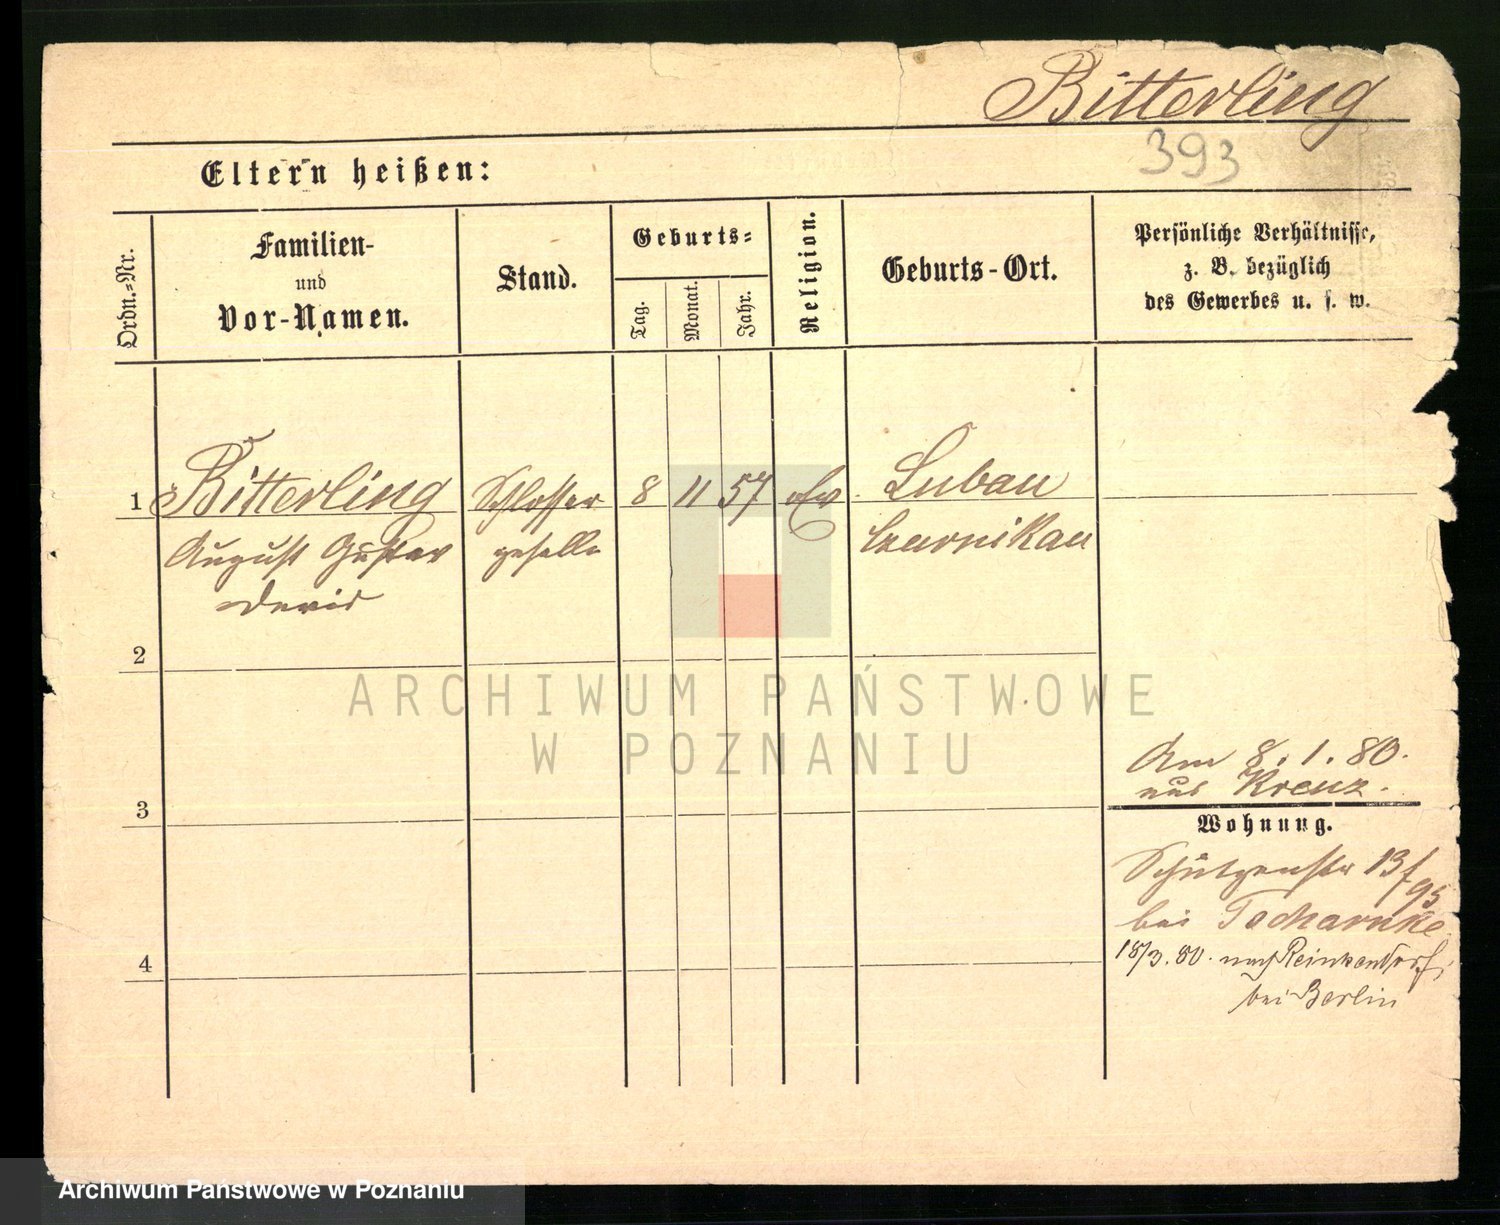 Bitterling
393
Eltern heißen:
Ordn.-Nr.
Familien-
und
Vor-Namen.
Stand.
Geburts-
Tag.
Monat.
Jahr.
Religion.
Geburts-Ort.
Persönliche Verhältnisse,
z. B. bezüglich
des Gewerbes u. s. w.
1 Bitterling Schlosser 8 11 57 Ev. Lubau
August Gustav geselle Czarnikau
David
2
ARCHIWUM PAŃSTWOWE
W POZNANIU
Am 8.1.80.
aus Kreuz.
3
Wohnung.
Schützenstr 13/95
bei Tscharnke
4
18/3.80. nach Reinkendorf,
bei Berlin
Archiwum Państwowe w Poznaniu